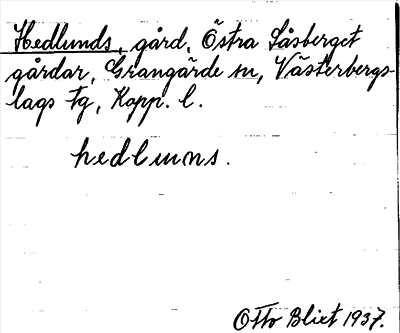 Hedlunds, gård, Östra Såsberget
gårdar, Grangärde sn, Västerbergs-
lags tg, Kopp. l.
hedluns.
Otto Blixt 1937.